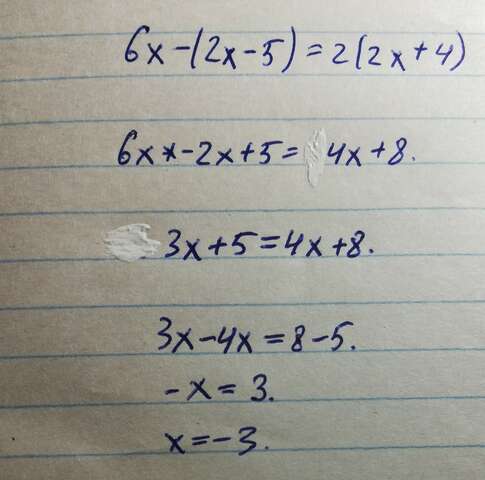 6x-(2x-5)=2(2x+4)
6x*-2x+5=4x+8.
3x+5=4x+8.
3x-4x=8-5.
-x=3.
x=-3.